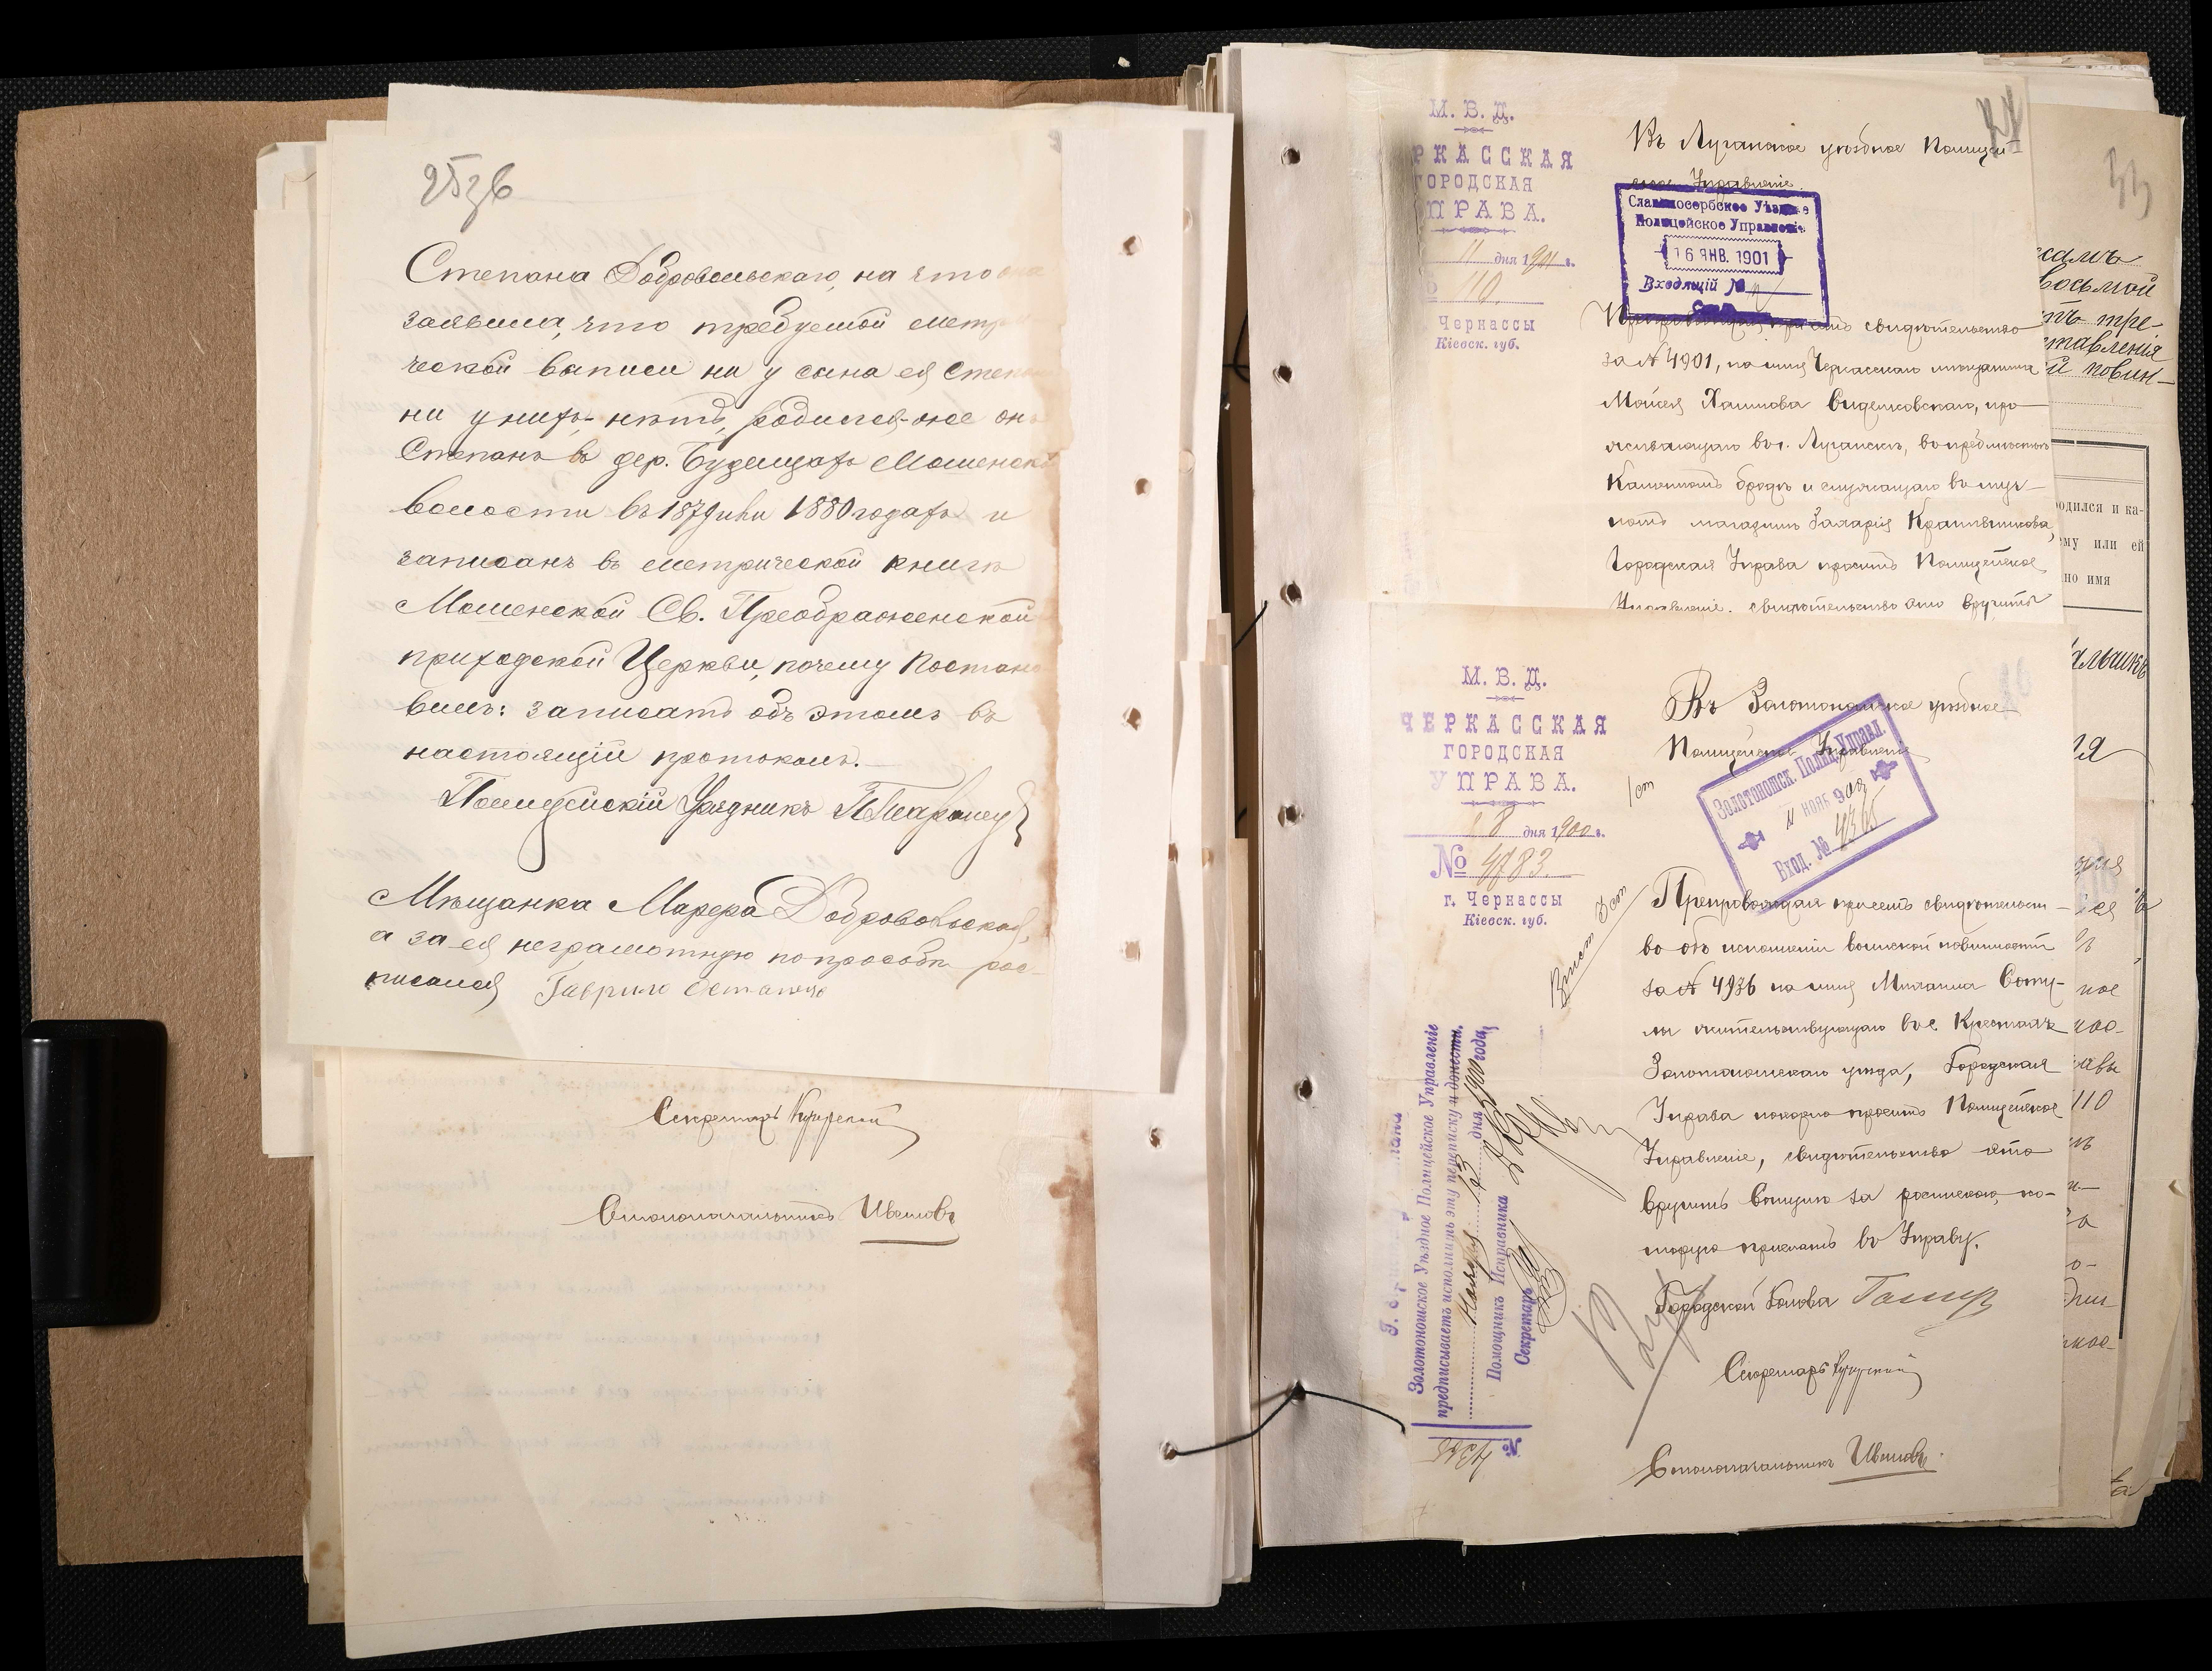 25зв
Степана Добровольскаго, на что она
заявила, что требуемой метри
ческой выписи ни у сына ея Степа
ни у нихъ нѣтъ, родился-же он
Степанъ въ дер. Будищахъ Мошенск
волости въ 1879 или 1880 годахъ и
записанъ въ метрической книгѣ
Мошенской Св. Преображенской
приходской Церкви, почему Постано
вилъ: записать объ этомъ въ
настоящій протоколъ.
Полицейскій Урядникъ
Мѣщанка Марфа Добровольская,
а за ея неграмотную по просьбѣ рос-
писался Гаврило
Секретарь
Столоначальникъ Ивановъ
М. В. Д.
РКАССКАЯ
ГОРОДСКАЯ
УПРАВА.
11 дня 1901 г.
110.
Черкассы
Кіевск. губ.
Въ Луганское уѣздное Полицей-
ское Управленіе.
Славяносербское Уѣздное
Полицейское Управленіе
16 ЯНВ. 1901
Входящій №
Препровождая при семъ свидѣтельство
за № 4901, на имя Черкасскаго мѣщанина
Мойсея Хаимова Виделковскаго, про
живающаго въ г. Луганскѣ, въ предмѣстьи
Каменномъ бродѣ и служащаго въ муч-
номъ магазинѣ Захарія Крапивникова,
Городская Управа проситъ Полицейское
Управленіе, свидѣтельство это вручить
М. В. Д.
ЧЕРКАССКАЯ
ГОРОДСКАЯ
УПРАВА.
8 дня 1900 г.
№ 4783.
г. Черкассы
Кіевск. губ.
Въ Золотоношское уѣздное
Полицейское Управленіе
Золотоношск. Полиц. Управл.
11 НОЯБ 900
Вход. № 4365
Препровождая при семъ свидѣтельст-
во объ исполненіи воинской повинности
за № 4936 на имя Михаила Соту-
лы жительствующаго въ с. Крестахъ
Золотоношскаго уѣзда, Городская
Управа покорно проситъ Полицейское
Управленіе, свидѣтельство это
вручить Сотулѣ за роспискою, ко-
торую прислать въ Управу.
Городской Голова
Секретарь
Столоначальникъ Ивановъ
Золотоношское Уѣздное Полицейское Управленіе
предписываетъ исполнить эту переписку и донести.
Ноября 13 дня 1900 года
Помощникъ Исправника
Секретарь
№ 4365
33
восьмой
тъ тре-
ставленія
й повин-
одился и ка-
ему или ей
но имя
альчикъ
110